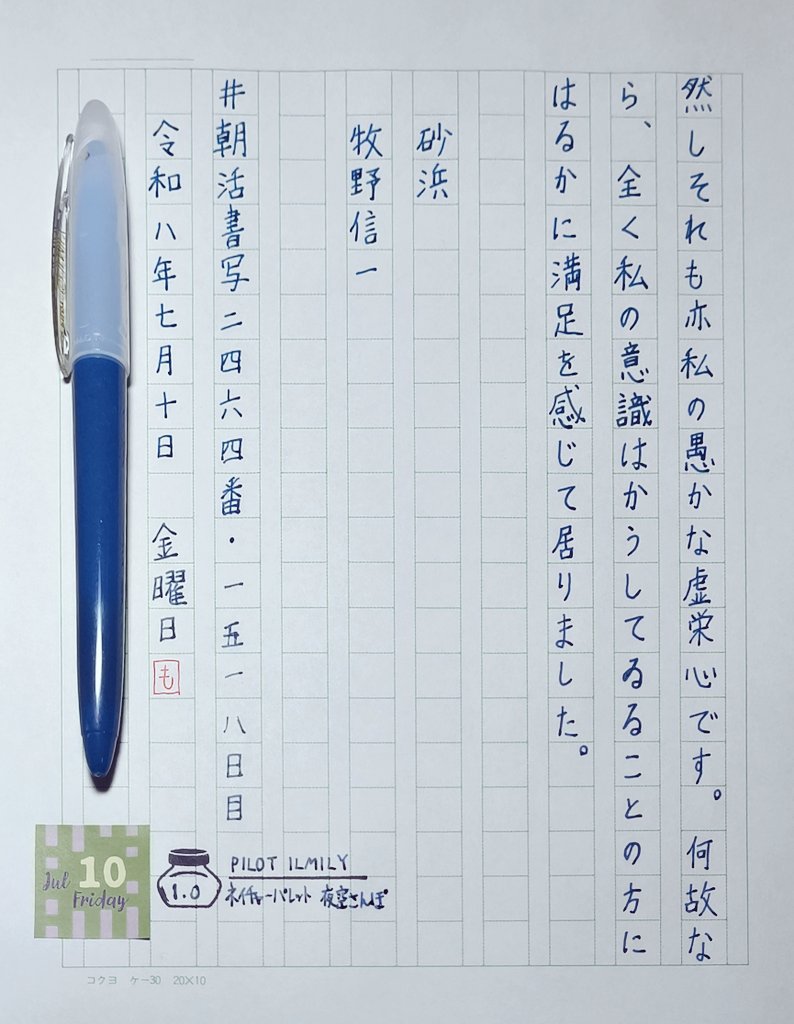 然しそれも亦私の愚かな虚栄心です。何故な
ら、全く私の意識はかうしてゐることの方に
はるかに満足を感じて居りました。
砂浜
牧野信一
#朝活書写二四六四番・一五一八日目
令和八年七月十日　金曜日 も
Jul 10
Friday
1.0
PILOT ILMILY
ネイチャーパレット 夜空さんぽ
コクヨ ケー30 20×10